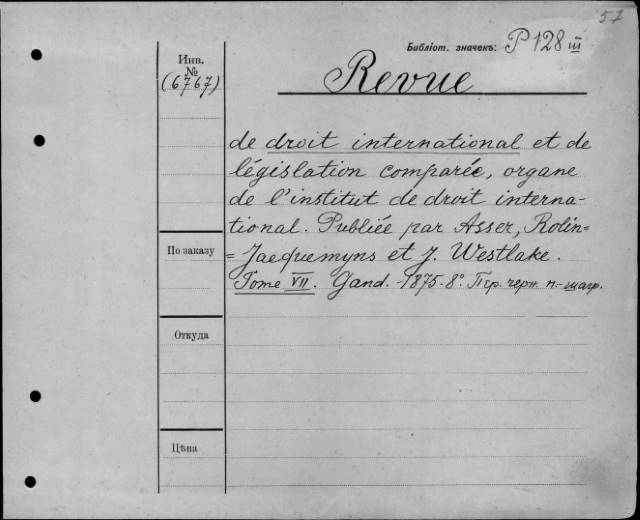 57
Библіот. значекъ: P 128 III
Инв.
№
(6767)
Revue
de droit international et de
législation comparée, organe
de l'institut de droit interna-
tional. Publiée par Asser, Rolin=
По заказу
=Jaequemyns et J. Westlake.
Tome VII. Gand. 1875. 8º. Пер. черн. п.-шагр.
Откуда
Цѣна